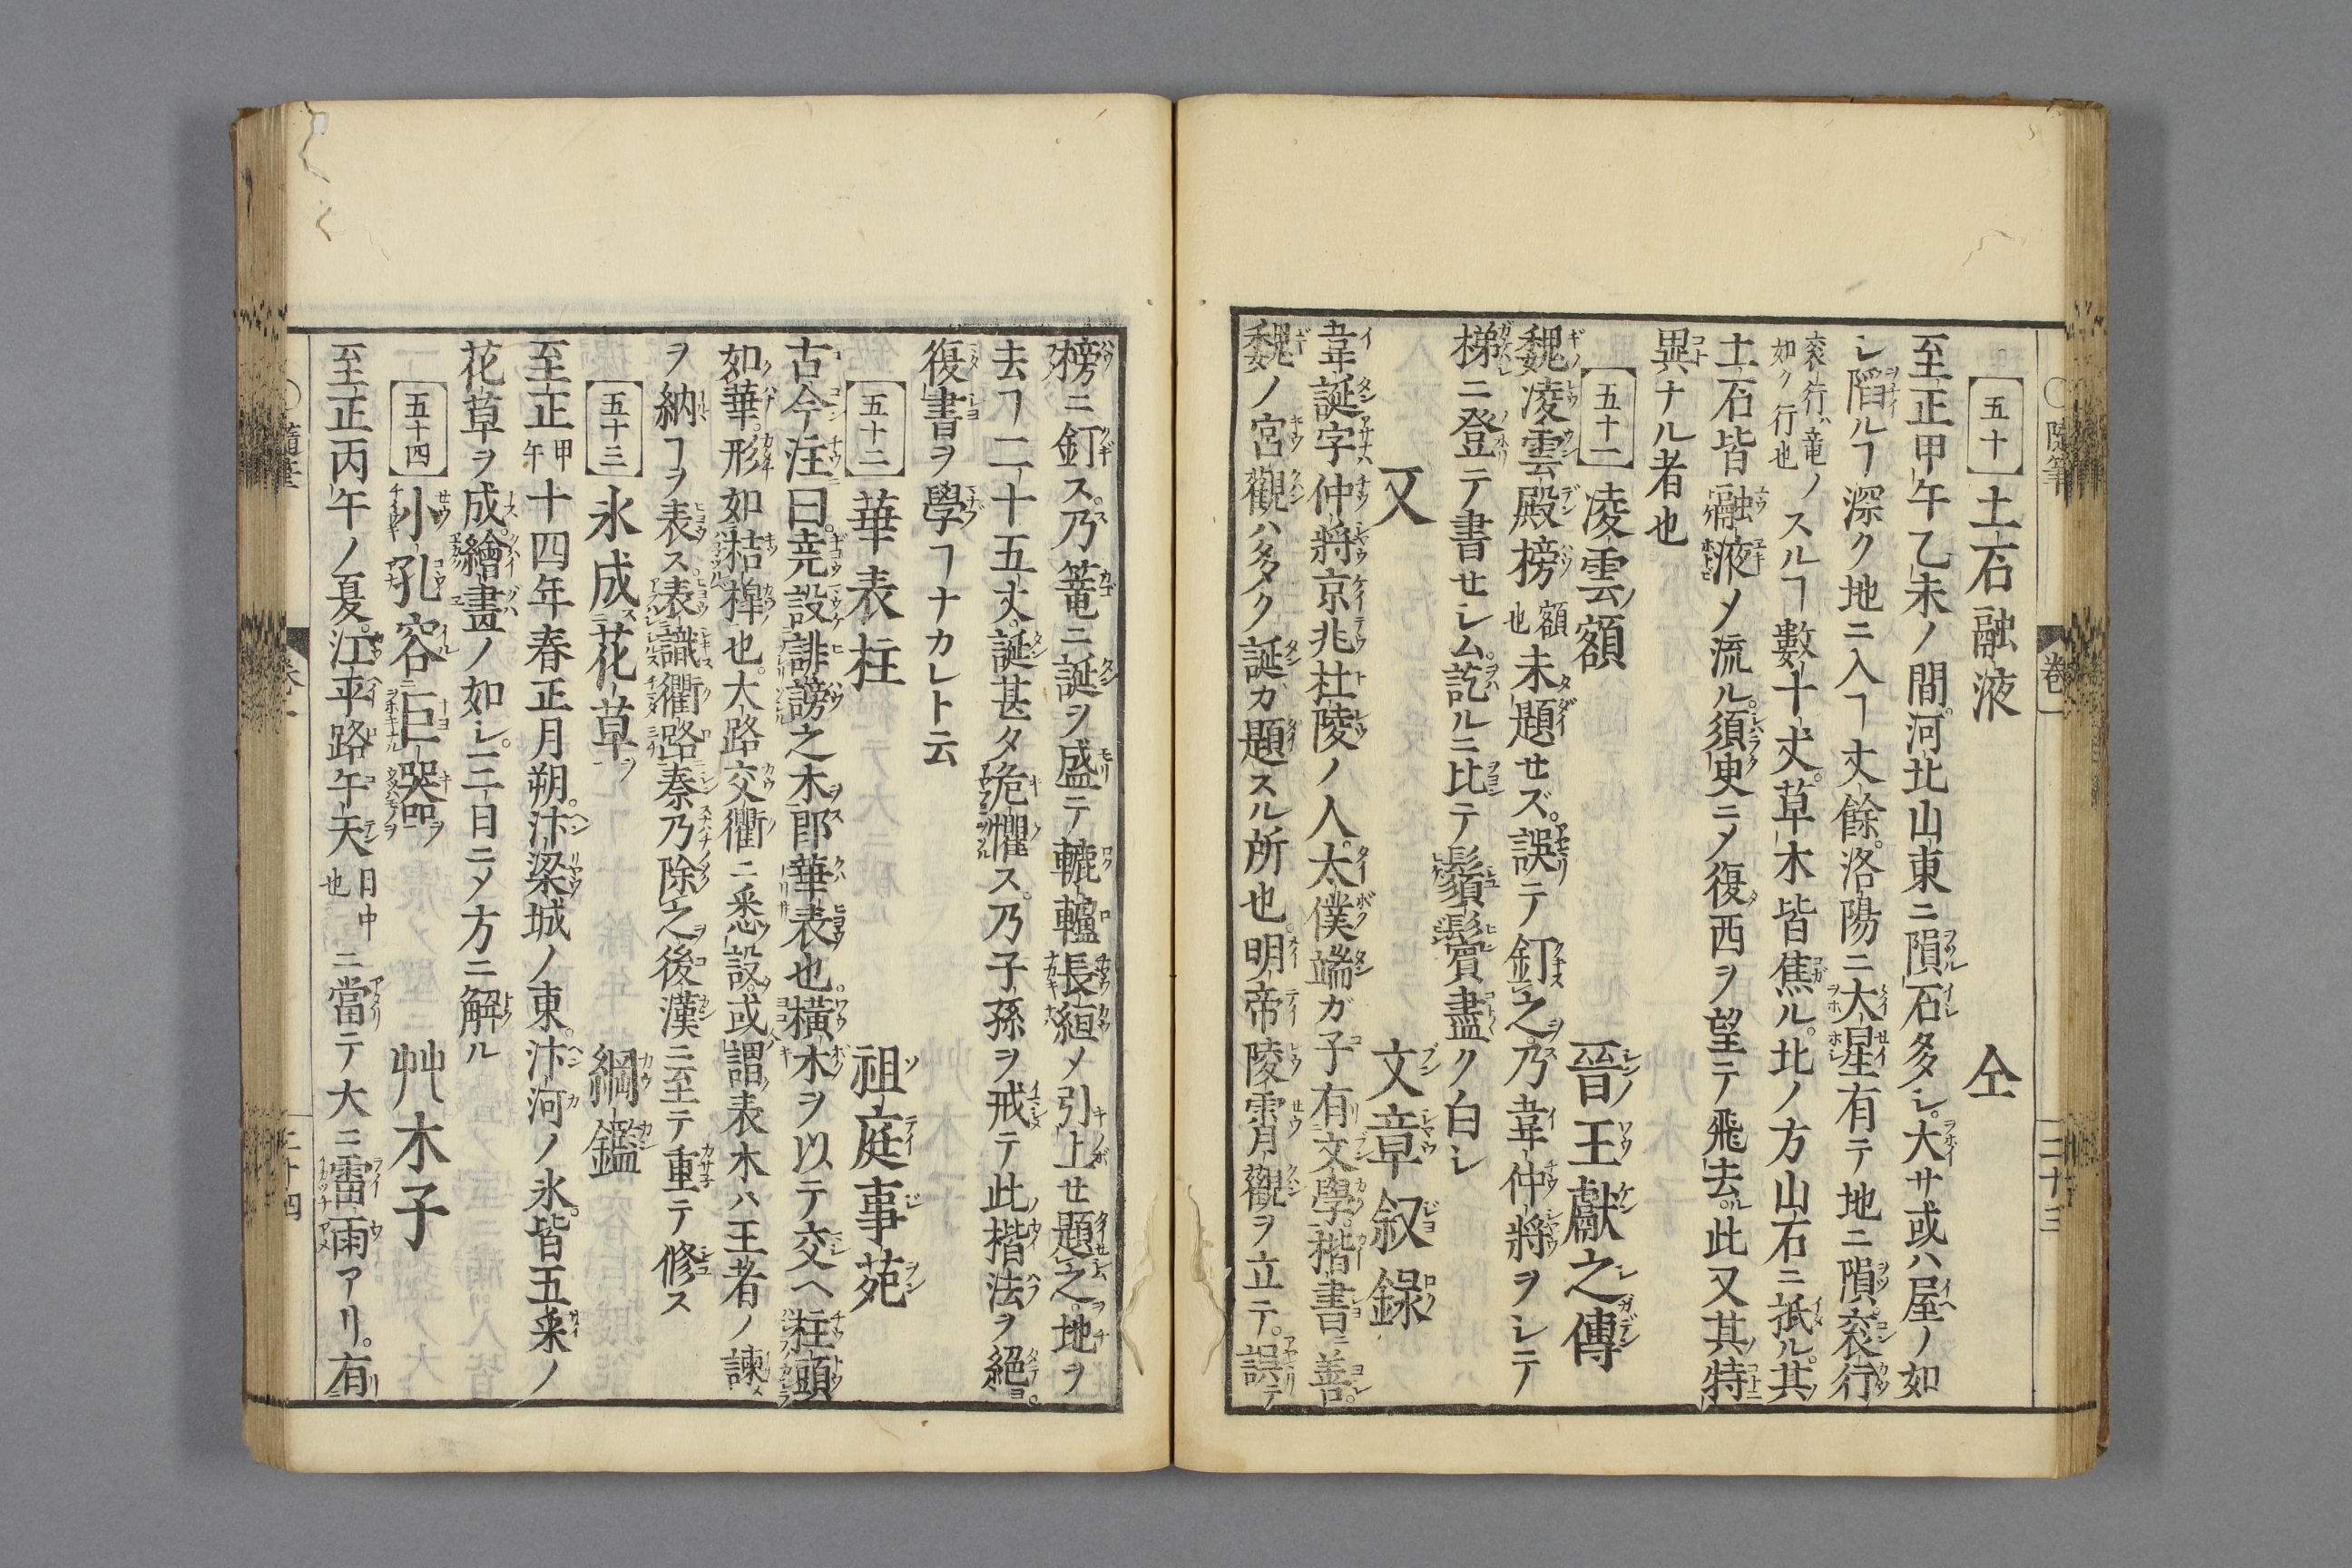 ○隨筆　巻一　二十三
【五十】土石融液　仝
至正甲午乙未ノ間。河北山東ニ隕石多シ。大サ或ハ屋ノ如
シ陷ルヿ深ク地ニ入ヿ丈餘。洛陽ニ大星有テ地ニ隕。袞行
袞行ハ竜ノ如ク行也ノスルヿ數十丈。草木皆焦ル。北ノ方山石ニ抵ル。其
土石皆融液メ流ル。須臾ニメ復西ヲ望テ飛去ル。此又其特
異ナル者也
【五十一】凌雲ノ額　晉ノ王獻之傳
魏凌雲殿榜額也未題せズ。誤テ釘之。乃韋仲將ヲシテ
梯ニ登テ書せシム。訖ルニ比テ鬚鬢盡ク白シ
又　文章叙録
韋誕字仲將京兆杜陵ノ人。太僕端ガ子有文學。楷書ニ善。
魏ノ宮觀ハ多ク誕カ題スル所也。明帝陵霄觀ヲ立テ。誤テ
榜ニ釘ス。乃篭ニ誕ヲ盛テ轆轤長絙メ引上せ題之。地ヲ
去ヿ二十五丈。誕甚タ危懼ス。乃子孫ヲ戒テ此楷法ヲ絕。
復書ヲ學ヿナカレト云
【五十二】華表柱　祖庭事苑
古今注曰。尭設誹謗之木郎華表也。橫木ヲ以テ交ヘ柱頭
如華。形如桔橰也。大路交衢ニ悉設。或謂表木ハ王者ノ諫
ヲ納ヿヲ表ス。表識衢路秦乃除之後漢ニ至テ重テ修ス
【五十三】氷成花草ヲ　綱鑑
至正甲午十四年春正月朔。汴梁城ノ東。汴河ノ氷。皆五采ノ
花草ヲ成。繪畫ノ如シ。三日ニメ方ニ解ル
【五十四】小孔容巨器ヲ　艸木子
至正丙午ノ夏。江平路午天日中也ニ當テ大ニ雷雨アリ。有
○隨筆　巻一　二十四